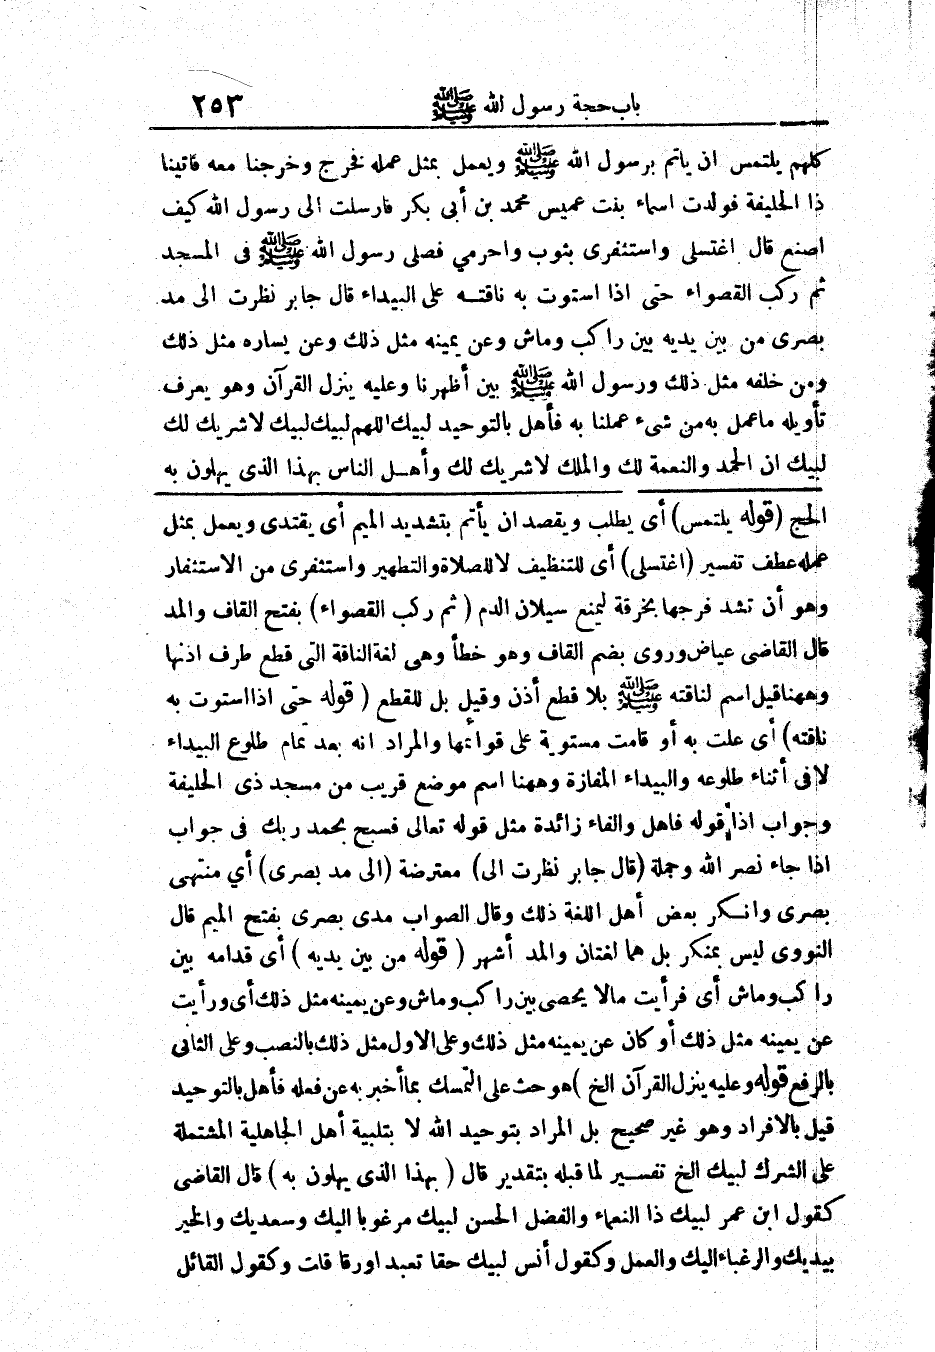 باب حجة رسول الله ﷺ ٢٥٣
كلهم يلتمس ان ياتم برسول الله ﷺ ويعمل بمثل عمله فخرج وخرجنا معه فاتينا
ذا الحليفة فولدت اسماء بنت عميس محمد بن أبي بكر فارسلت الى رسول الله كيف
اصنع قال اغتسلى واستثفرى بثوب واحرمي فصلى رسول الله ﷺ فى المسجد
ثم ركب القصواء حتى اذا استوت به ناقته على البيداء قال جابر نظرت الى مد
بصرى من بين يديه بين راكب وماش وعن يمينه مثل ذلك وعن يساره مثل ذلك
ومن خلفه مثل ذلك ورسول الله ﷺ بين أظهرنا وعليه ينزل القرآن وهو يعرف
تأويله ماعمل به من شىء عملنا به فأهل بالتوحيد لبيك اللهم لبيك لبيك لاشريك لك
لبيك ان الحمد والنعمة لك والملك لاشريك لك وأهل الناس بهذا الذى يهلون به
الحج (قوله يلتمس) أى يطلب ويقصد ان يأتم بتشديد الميم أى يقتدى ويعمل بمثل
عمله عطف تفسير (اغتسلى) أى للتنظيف لا للصلاة والتطهير واستثفرى من الاستثفار
وهو أن تشد فرجها بخرقة ليمنع سيلان الدم ( ثم ركب القصواء) بفتح القاف والمد
قال القاضى عياض وروى بضم القاف وهو خطأ وهى لغة الناقة التى قطع طرف اذنها
وههنا قيل اسم لناقته ﷺ بلا قطع أذن وقيل بل للقطع ( قوله حتى اذا استوت به
ناقته) أى علت به أو قامت مستوية على قوائمها والمراد انه بعد تمام طلوع البيداء
لا فى أثناء طلوعه والبيداء المفازة وههنا اسم موضع قريب من مسجد ذى الحليفة
وجواب اذا قوله فاهل والفاء زائدة مثل قوله تعالى فسبح بحمد ربك فى جواب
اذا جاء نصر الله وجملة (قال جابر نظرت الى) معترضة (الى مد بصرى) أي منتهى
بصرى وانكر بعض أهل اللغة ذلك وقال الصواب مدى بصرى بفتح الميم قال
النووى ليس بمنكر بل هما لغتان والمد أشهر ( قوله من بين يديه ) أى قدامه بين
راكب وماش أى فرأيت مالا يحصى بين راكب وماش وعن يمينه مثل ذلك أى ورأيت
عن يمينه مثل ذلك أو كان عن يمينه مثل ذلك وعلى الاول مثل ذلك بالنصب وعلى الثانى
بالرفع قوله وعليه ينزل القرآن الخ ) هو حث على التمسك بما أخبر به عن فعله فأهل بالتوحيد
قيل بالافراد وهو غير صحيح بل المراد بتوحيد الله لا بتلبية أهل الجاهلية المشتملة
على الشرك لبيك الخ تفسير لما قبله بتقدير قال ( بهذا الذى يهلون به ) قال القاضى
كقول ابن عمر لبيك ذا النعماء والفضل الحسن لبيك مرغوبا اليك وسعديك والخير
بيديك والرغباء اليك والعمل وكقول أنس لبيك حقا تعبد اورقا قات وكقول القائل